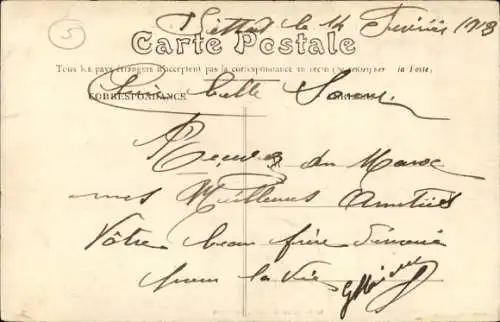 5
le 14 Février 1913
Carte Postale
Tous les pays étrangers n'acceptent pas la correspondance au recto (Se renseigner à la Poste)
CORRESPONDANCE
Belle Sœur
Recevez du Maroc
mes Meilleures Amitiés
Vôtre beau frère
pour la vie